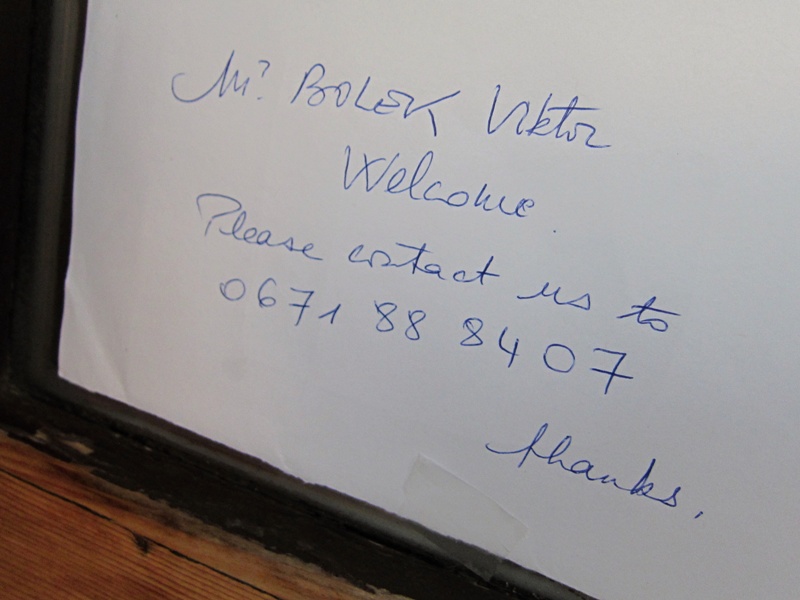 Mr BOLEK Viktor
Welcome.
Please contact us to
0671 88 84 07
thanks,